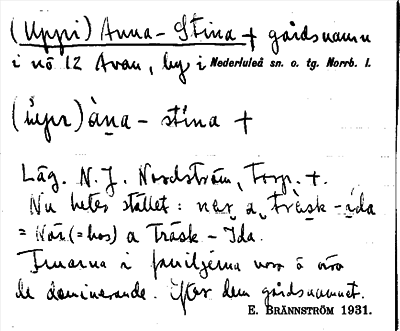 (Uppi) Anna-Stina + gårdsnamn
i nö 12 Avan, by i Nederluleå sn. o. tg. Norrb. l.
(ùpr) àṇa - stína +
Läg. N. J. Nordström, Torp. +.
Nu hetes stället: när a träsk-ida
= När (= hos) a Träsk-Ida.
Fruarna i familjerna voro o äro
de dominerande. Efter dem gårdsnamnet.
E. BRÄNNSTRÖM 1931.